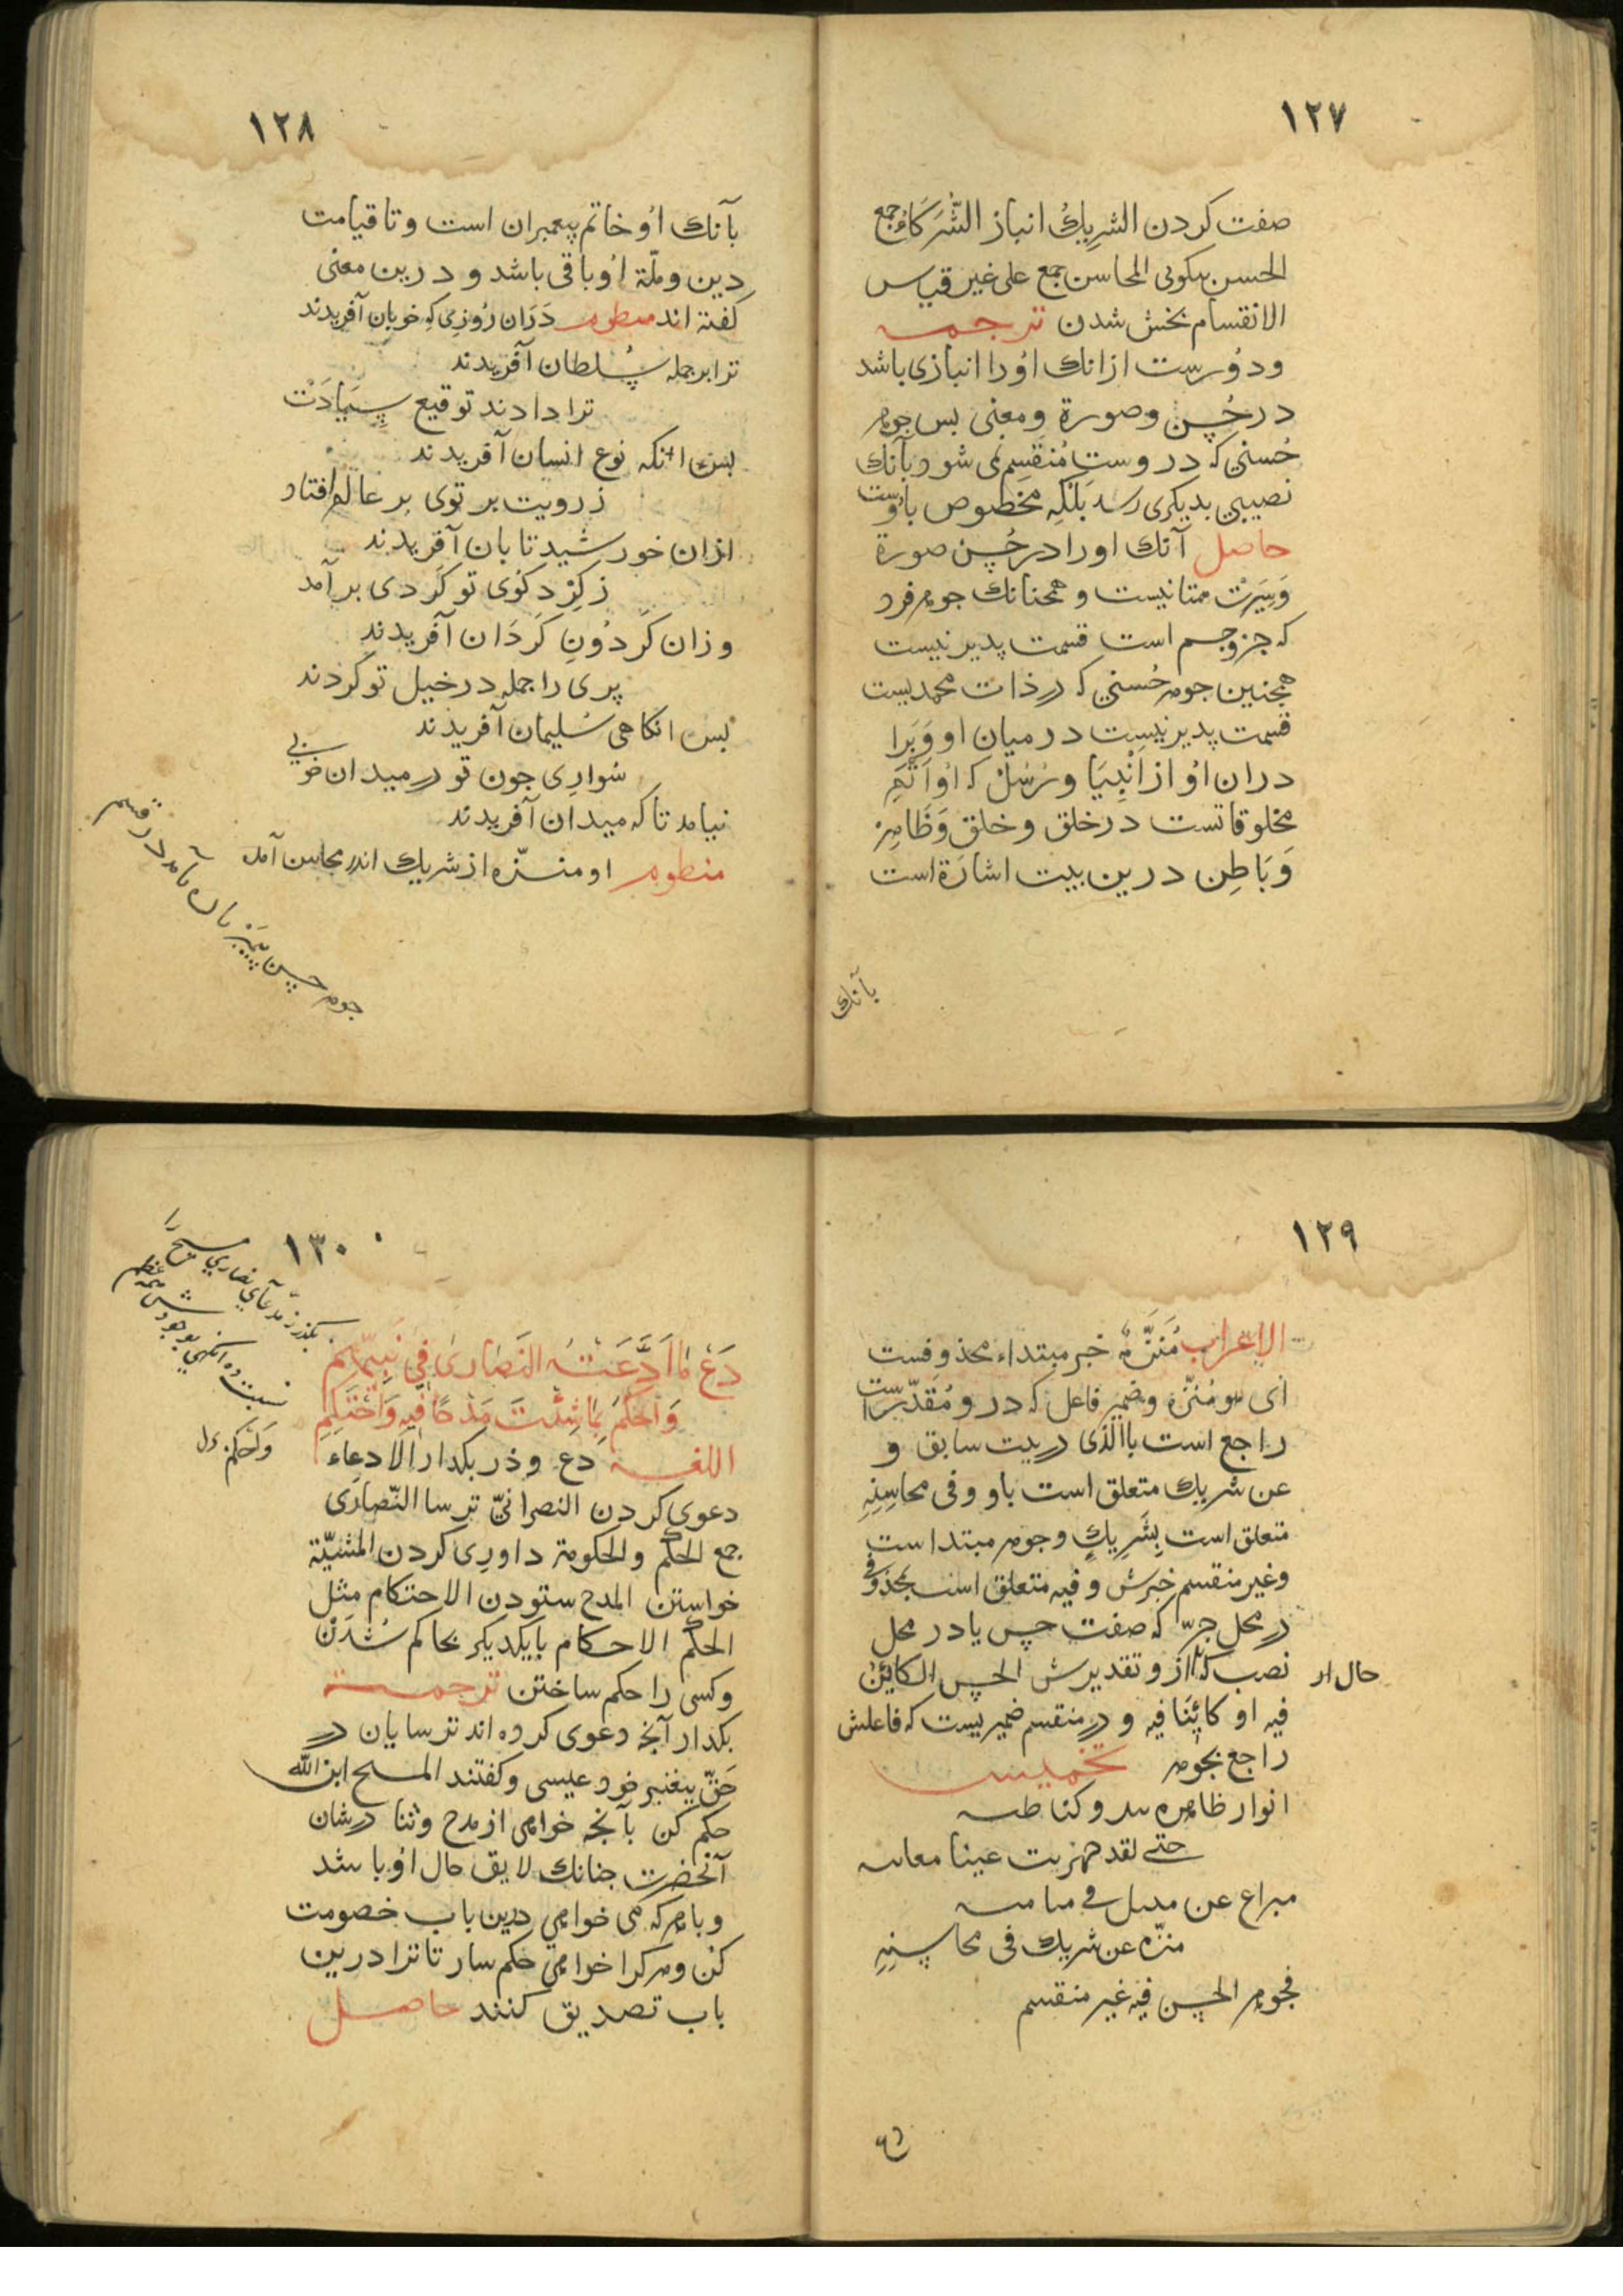 ١٢٧
صفت كردن الشريكُ انباز الشُّرَكَاءُ جمع
الحسن نيكويى المحاسن جمع على غير قياس
الانقسام بخش شدن ترجمه
ودُورست ازانك اُورا انبازى باشد
درحُسن وصورة ومعنى بس جوهر
حُسنى كه دروست مُنقسِم نمى شود بآنك
نصيبى بديكرى رسد بَلْكِه مخصوص باُوست
حاصل آنك اورا درحُسن صورة
وَسِيَرتْ همتا نيست وهمجنانك جوهر فرد
كه جزو جسم است قسمت پدير نيست
همجنين جوهر حُسنى كه در ذات محمديست
قسمت پدير نيست درميان او وَبَرا
دران اُو از اَنْبِيَا ورُسُلْ كه اُو اَتَمِّ
مخلوقاتست درخلق وخلق وَظَاهِر
وَبَاطِن درين بيت اشارة است
بآنك
١٢٨
بآنك اُو خاتم پيغمبران است وتا قيامت
دين وملّة اُو باقى باشد ودرين معنى
كفته اند منظوم دَرَان رُوزى كِه خوبان آفريدند
ترا بر جمله سُلطان آفريدند
ترا دادند توقيع سِيَادَتْ
بس انكه نوع انسان آفريدند
ز رويت برتوى بر عالم افتاد
ازان خورشيد تابان آفريدند
ز كِرْد كوى تو كَردى برآمد
وزان كَردُونِ كَردَان آفريدند
پرى را جمله درخيل تو كردند
بس انكاهى سُليمان آفريدند
سُوارى جون تو در ميدان خوبى
نيامد تا كه ميدان آفريدند
منظوم او منزّه از شريك اندر محاسن آمد
جوهر حسن پيمبر زان نيامد در قسم
١٢٩
الإعراب مُنَزَّهٌ خبر مبتداء محذوفست
اى هو مُنَزَّه وضمير فاعل كه درو مُقدّرست
راجع است باالذى در بيت سابق و
عن شريك متعلق است باو وفى محاسِنِهِ
متعلق است بِشَرِيكٍ وجوهر مبتداست
وغير منقسم خبرش وفيه متعلق است بمحذوفى
در محل جرّ كه صفت حسن يا در محل
نصب كه ازو وتقديرش الحسن الكائِنُ
حال ار
فيه او كائِنًا فيه و در منقسم ضميريست كه فاعلش
راجع بجوهر تخميس
انوار ظاهره
حتى لقد عينا
مبراء عن فى
منزّه عن شريك فى محاسِنِهِ
فجوهر الحسن فيه غير منقسم
دع
١٣٠
بكذر ز مدّعاى نصارى مسيح را
وَاحْكُمْ
دَعْ مَا ادَّعَتْهُ النَّصَارَى فِي نَبِيِّهِمْ
وَاحْكُمْ بِمَا شِئْتَ مَدْحًا فِيهِ وَاحْتَكِمِ
اللغه دع وذر بكدار الادعاء
دعوى كردن النصرانىّ ترسا النّصارَى
جمع الحُكم والحكومة داورِى كردن المشيّة
خواستن المدح ستودن الاحتكام مثل
الحكم الاحكام بايكديكر بحاكم شُدَنْ
وكسى را حكم ساختن ترجمه
بكدار آنچه دعوى كرده اند ترسايان در
حَقّ پيغنبر خود عيسى وكفتند المسيح ابن الله
حكم كن بآنچه خواهى از مدح وثنا در شان
آنحضرت جنانك لايق حال اُو باشد
وباهركه مى خواهى درين باب خصومت
كن وهركرا خواهى حكم ساز تا ترا درين
باب تصديق كنند حاصل